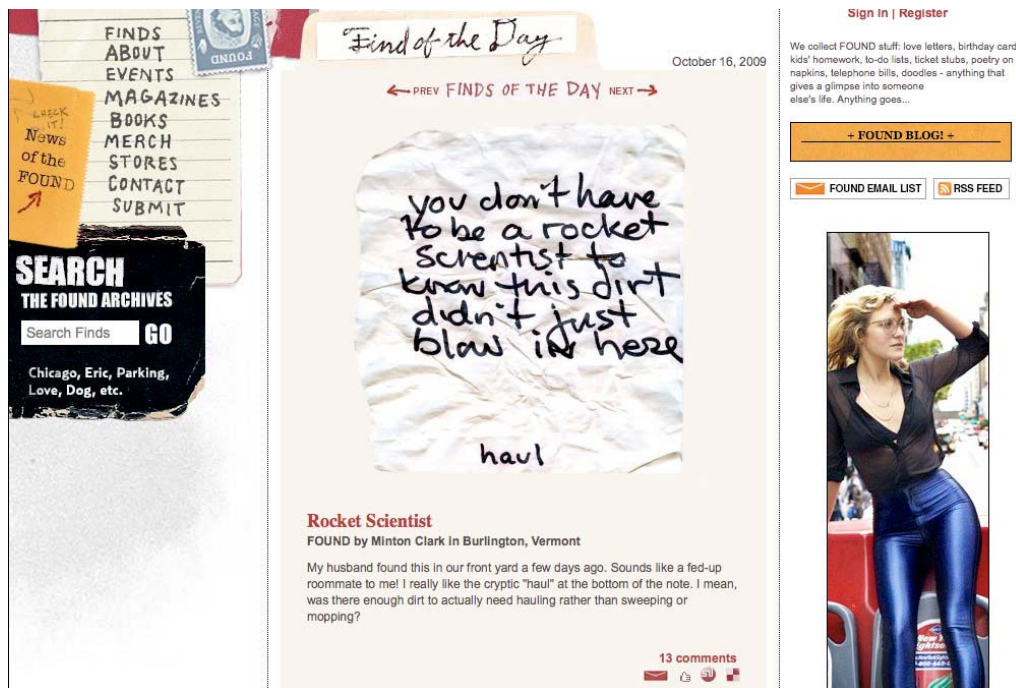 FINDS
ABOUT
EVENTS
MAGAZINES
BOOKS
MERCH
STORES
CONTACT
SUBMIT
FOUND
CHECK
IT!
News
of the
FOUND
SEARCH
THE FOUND ARCHIVES
Search Finds GO
Chicago, Eric, Parking,
Love, Dog, etc.
Find of the Day
October 16, 2009
PREV FINDS OF THE DAY NEXT
you don't have
to be a rocket
scientist to
know this dirt
didn't just
blow in here
haul
Rocket Scientist
FOUND by Minton Clark in Burlington, Vermont
My husband found this in our front yard a few days ago. Sounds like a fed-up
roommate to me! I really like the cryptic "haul" at the bottom of the note. I mean,
was there enough dirt to actually need hauling rather than sweeping or
mopping?
13 comments
Sign In | Register
We collect FOUND stuff: love letters, birthday card
kids' homework, to-do lists, ticket stubs, poetry on
napkins, telephone bills, doodles - anything that
gives a glimpse into someone
else's life. Anything goes...
+ FOUND BLOG! +
FOUND EMAIL LIST
RSS FEED